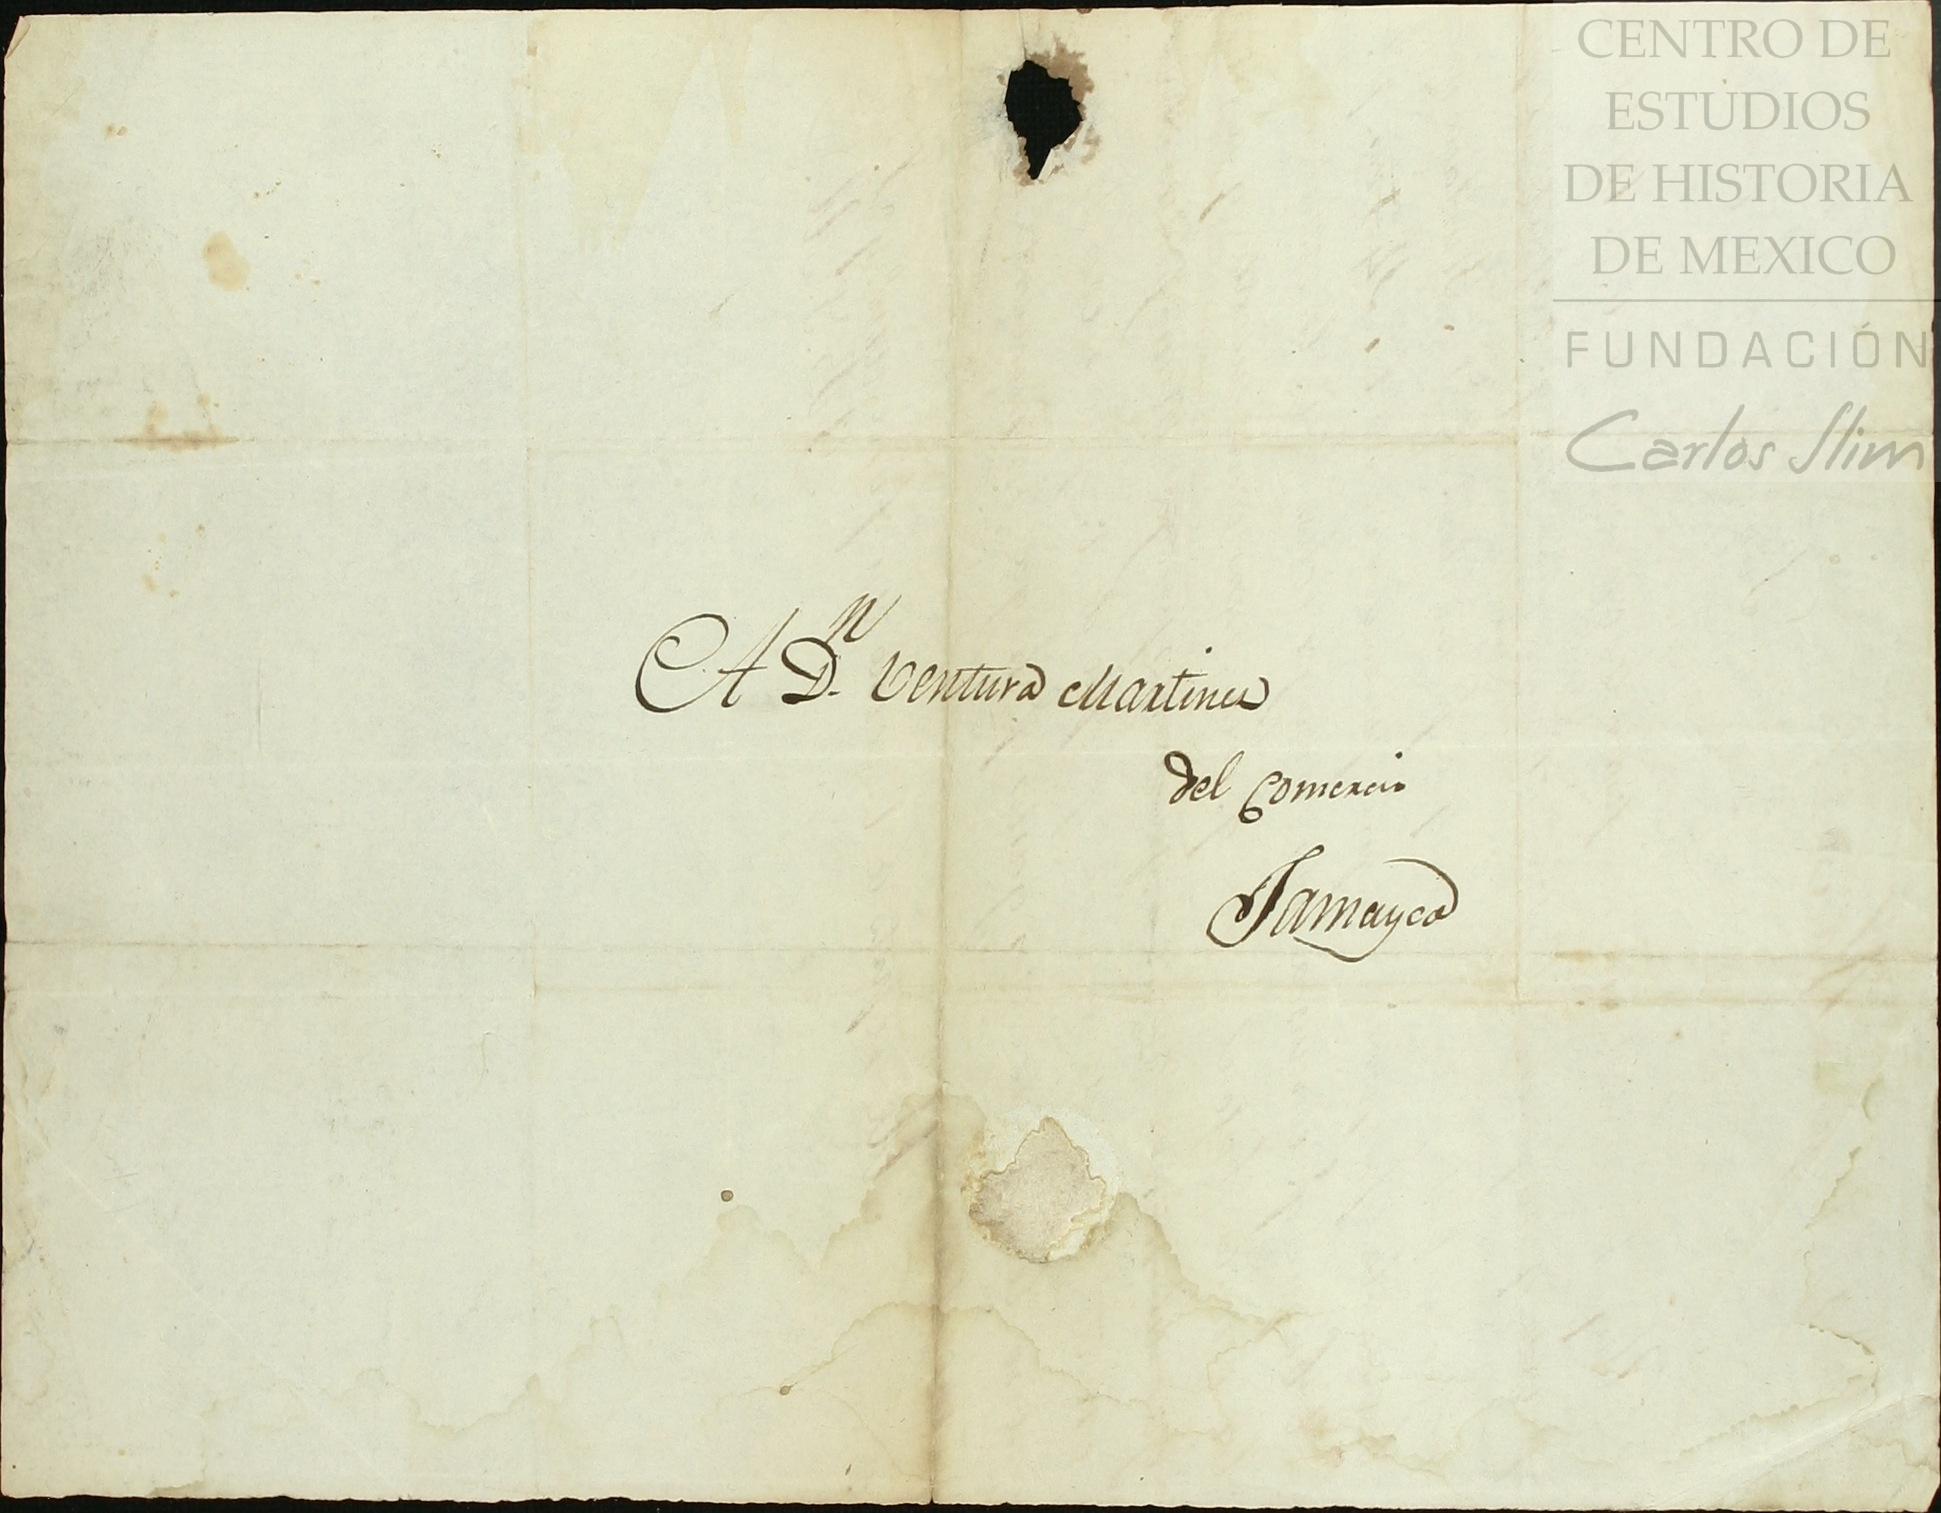 CENTRO DE
ESTUDIOS
DE HISTORIA
DE MEXICO
FUNDACIÓN
Carlos Slim
A Dn. Ventura Martinez
del Comercio
Jamayca